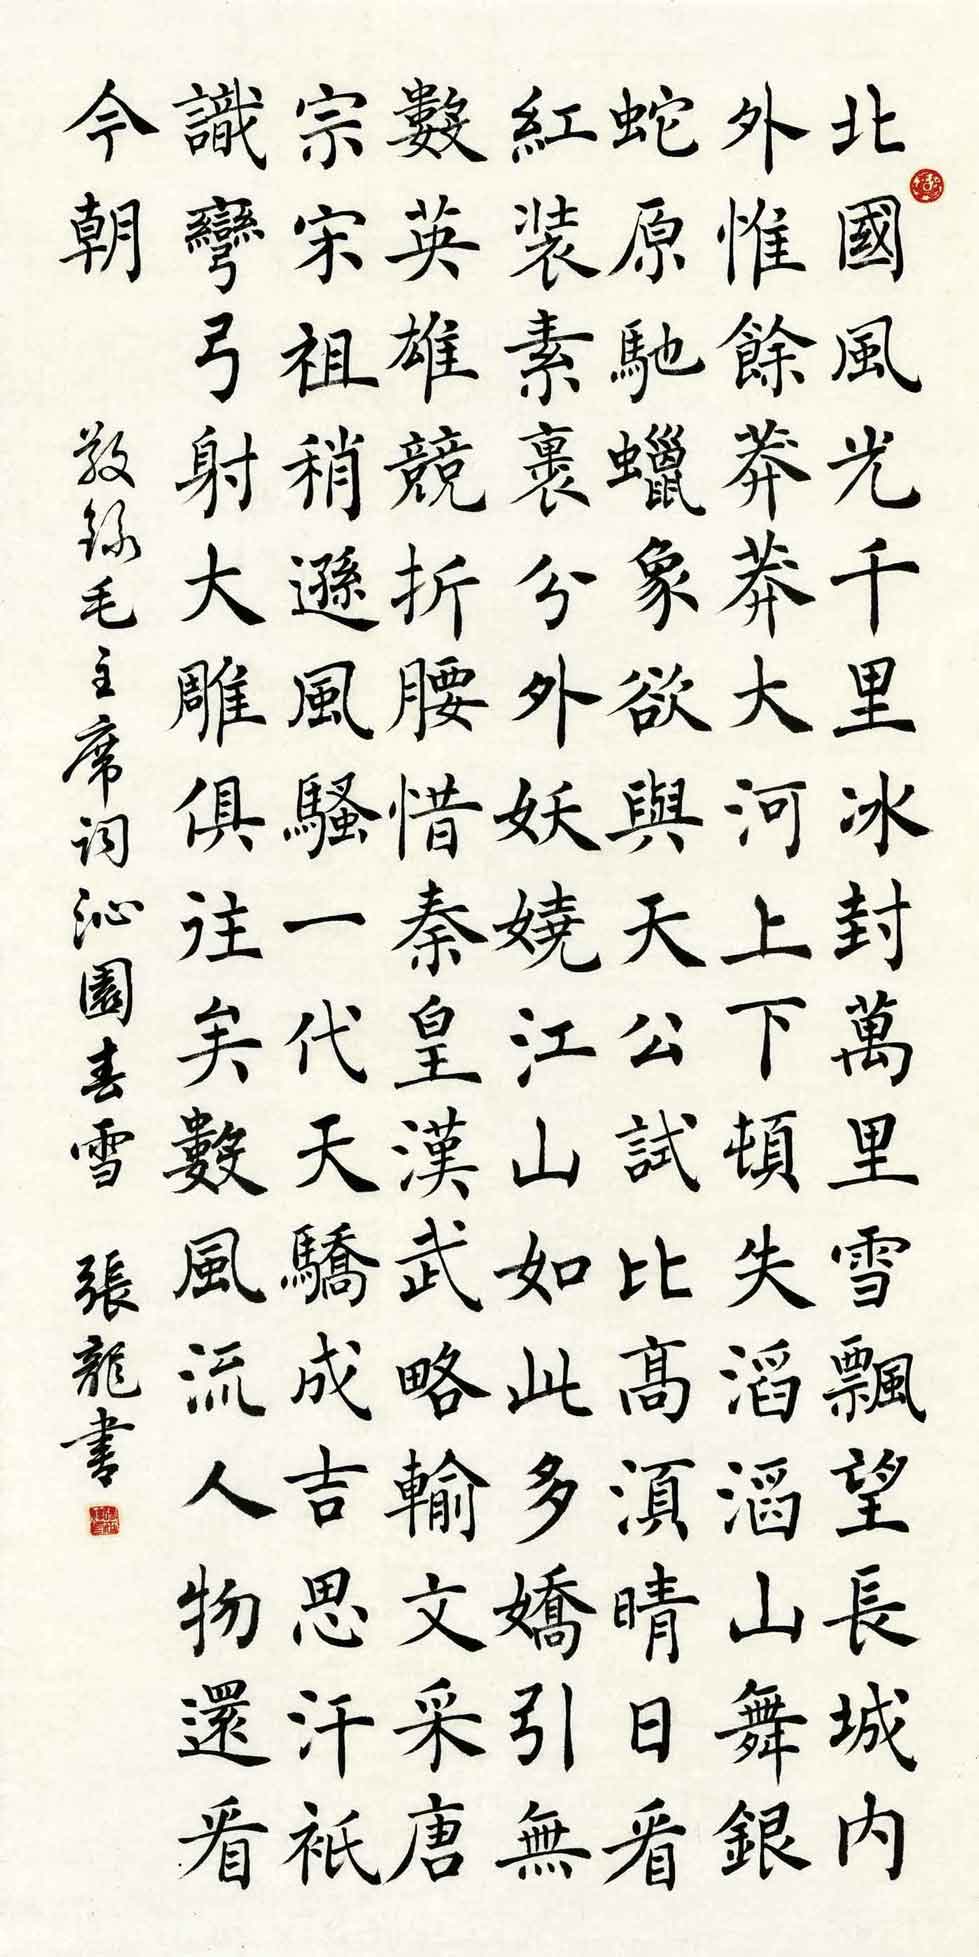 北國風光千里冰封萬里雪飄望長城内
外惟餘莽莽大河上下頓失滔滔山舞銀
蛇原馳蠟象欲與天公試比高湏晴日看
紅装素裹分外妖嬈江山如此多嬌引無
數英雄競折腰惜秦皇漢武略輸文采唐
宗宋祖稍遜風騷一代天驕成吉思汗衹
識彎弓射大雕俱往矣數風流人物還看
今朝
敬録毛主席词沁園春雪 張龍書